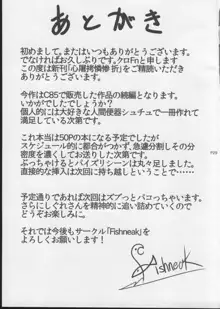 あとがき
初めまして。またはいつもありがとうございます。
でなければお久しぶりです。クロFnと申します
この度は新刊「心尾拷憐惨 折」をご精読いただき
ありがとうございます。
今作はC85で販売した作品の続編となります。
いかがでしたでしょうか?
個人的には大好きな人間便器シチュで一冊作れて
満足している次第です。
これ本当は50Pの本になる予定でしたが
スケジュール的に都合がつかず、急遽分割しその分
密度を濃くしてお送りした次第です。
ぶっちゃけるとパイズリシーンは丸々足しました。
直接的な挿入は次回に持ち越しということで・・・
予定通りであれば次回はズブっとパコっちゃいます。
さらにしぐれさんを精神的に追い詰めていくので
どうぞお楽しみに。
それでは今後もサークル「Fishneak」を
よろしくお願いします!
Fishneak